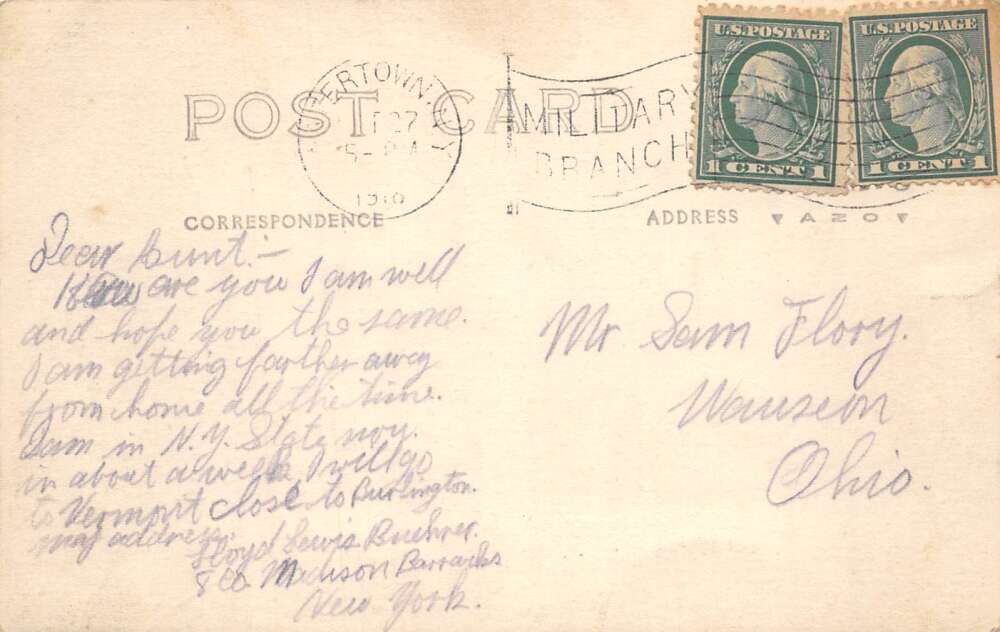 POST CARD
WATERTOWN, N.Y.
27
5-PM
1918
MILITARY
BRANCH
U.S.POSTAGE
1 CENT 1
U.S.POSTAGE
1 CENT 1
CORRESPONDENCE
ADDRESS
AZO
Dear Aunt:-
How are you I am well
and hope you the same.
I am getting farther away
from home all the time.
I am in N.Y. State now.
in about a week I will go
to Vermont close to Burlington.
my address.
Lloyd Lewis Buehrer.
8 Co Madison Barracks
New York.
Mr Sam Flory.
Wauseon
Ohio.